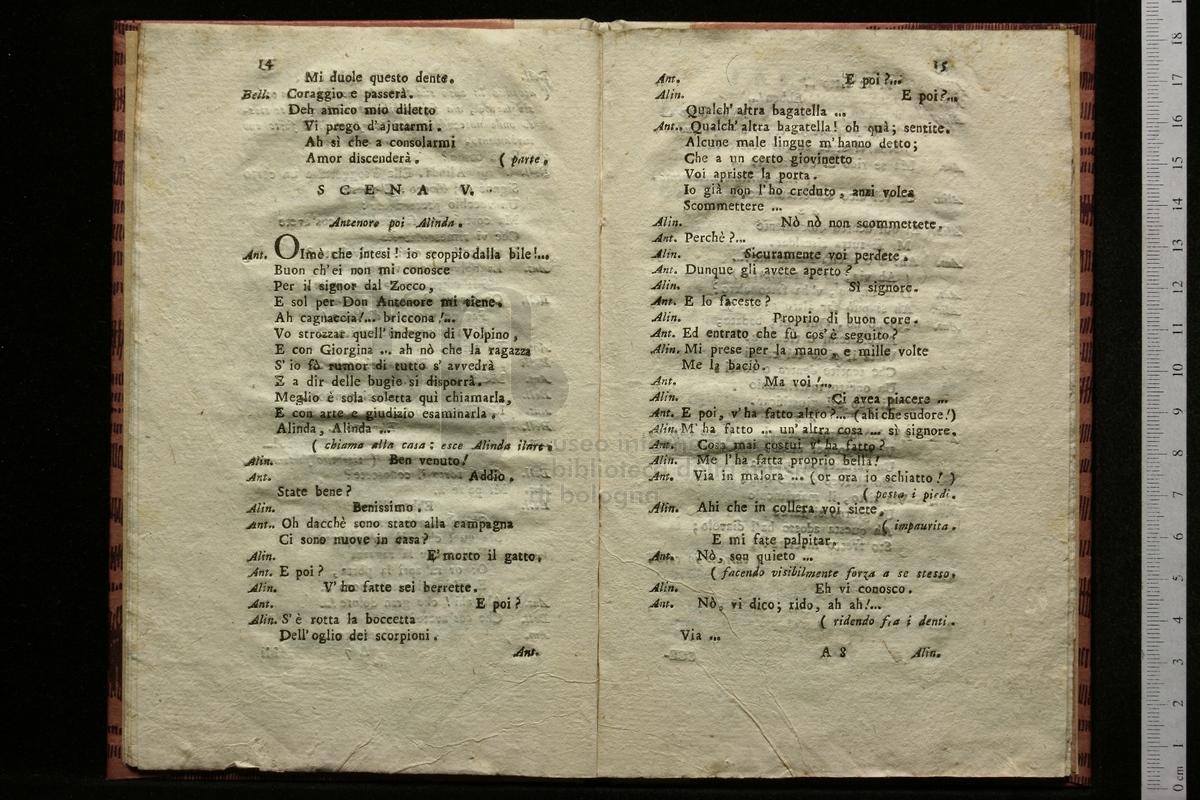 14
Mi duole questo dente.
Bell. Coraggio e passerà.
Deh amico mio diletto
Vi prego d'ajutarmi.
Ah sì che a consolarmi
Amor discenderà. ( parte.
SCENA V.
Antenore poi Alinda.
Ant. OImè che intesi! io scoppio dalla bile!...
Buon ch'ei non mi conosce
Per il signor dal Zocco,
E sol per Don Antenore mi tiene.
Ah cagnaccia!... briccona!...
Vo strozzar quell' indegno di Volpino,
E con Giorgina ... ah nò che la ragazza
S' io fò rumor di tutto s' avvedrà
E a dir delle bugie si disporrà.
Meglio è sola soletta quì chiamarla,
E con arte e giudizio esaminarla.
Alinda, Alinda ...
( chiama alla casa: esce Alinda ilare.
Alin. Ben venuto!
Ant. Addio.
State bene?
Alin. Benissimo.
Ant. Oh dacchè sono stato alla campagna
Ci sono nuove in casa?
Alin. E' morto il gatto.
Ant. E poi?
Alin. V' ho fatte sei berrette.
Ant. E poi?
Alin. S' è rotta la boccetta
Dell' oglio dei scorpioni.
Ant.
15
Ant. E poi?...
Alin. E poi?...
Qualch' altra bagatella ...
Ant. Qualch' altra bagatella! oh quà; sentite.
Alcune male lingue m' hanno detto;
Che a un certo giovinetto
Voi apriste la porta.
Io già non l' ho creduto, anzi volea
Scommettere ...
Alin. Nò nò non scommettete.
Ant. Perchè?...
Alin. Sicuramente voi perdete.
Ant. Dunque gli avete aperto?
Alin. Sì signore.
Ant. E lo faceste?
Alin. Proprio di buon core.
Ant. Ed entrato che fù cos' è seguito?
Alin. Mi prese per la mano, e mille volte
Me la baciò.
Ant. Ma voi!...
Alin. Ci avea piacere ...
Ant. E poi, v' ha fatto altro?... (ahi che sudore!)
Alin. M' ha fatto ... un' altra cosa ... sì signore.
Ant. Cosa mai costui v' ha fatto?
Alin. Me l' ha fatta proprio bella!
Ant. Via in malora ... (or ora io schiatto!)
( pesta i piedi.
Alin. Ahi che in collera voi siete,
( impaurita.
E mi fate palpitar.
Ant. Nò, son quieto ...
( facendo visibilmente forza a se stesso.
Alin. Eh vi conosco.
Ant. Nò, vi dico; rido, ah ah!...
( ridendo fra i denti.
Via ...
A 8 Alin.
museo
biblioteca
di bologna
0 cm 1 2 3 4 5 6 7 8 9 10 11 12 13 14 15 16 17 18